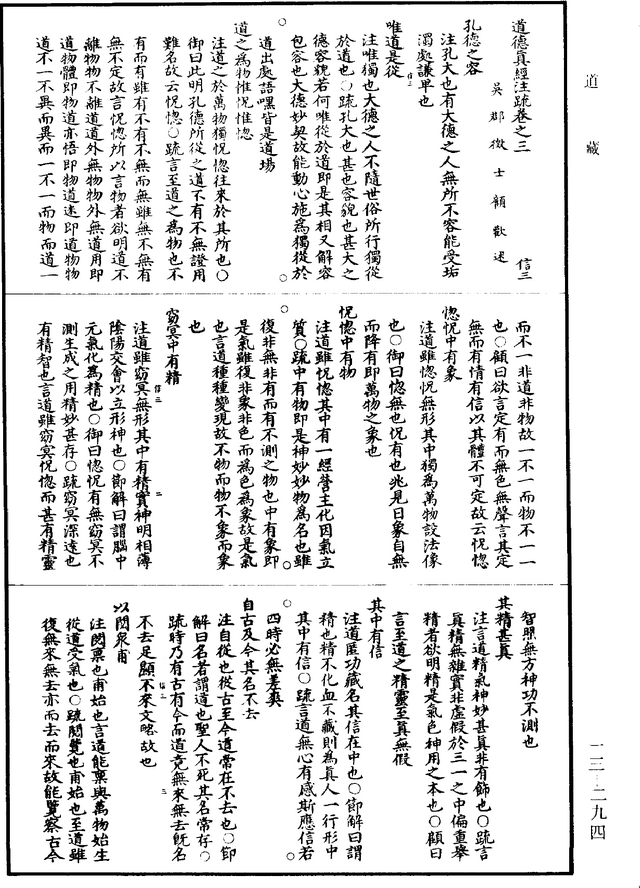 道藏
道德真經注疏卷之三
信三
吳郡徵士顧歡述
孔德之容
注孔大也有大德之人無所不容能受垢
濁處謙卑也
唯道是從
注唯獨也大德之人不隨世俗所行獨從
於道也○疏孔大也甚也容貌也甚大之
德容貌若何唯從於道即是其相又解容
包容也大德妙契故能動心施為獨從於
道出處語嘿皆是道場
道之為物惟怳惟惚
注道之於萬物獨怳惚往來於其所也○
御曰此明孔德所從之道不有不無證用
難名故云怳惚○疏言至道之為物也不
有而有雖有不有不無而無雖無不無有
無不定故言怳惚所以言物者欲明道不
離物物不離道道外無物物外無道用即
道物體即物道亦悟即物道迷即道物物
道不一不異而異而一不一而物而道一
而不一非道非物故一不一而物不一一
也○顧曰欲言定有而無色無聲言其定
無而有情有信以其體不可定故云怳惚
惚怳中有象
注道雖惚怳無形其中獨為萬物設法像
也○御曰惚無也怳有也兆見曰象自無
而降有即萬物之象也
怳惚中有物
注道雖怳惚其中有一經營主化因氣立
質○疏中有物即是神妙妙物為名也雖
復非無非有而有不測之物也中有象即
是氣雖復非象非色而為色為象故是氣
也言道種種變現故不物而物不象而象
也
窈冥中有精
注道雖窈冥無形其中有精實神明相薄
陰陽交會以立形神也○節解曰謂腦中
元氣化為精也○御曰惚怳有無窈冥不
測生成之用精妙甚存○疏窈冥深遠也
有精智也言道雖窈冥怳惚而甚有精靈
智照無方神功不測也
其精甚真
注言道精氣神妙甚真非有飾也○疏言
真精無雜實非虛假於三一之中偏重舉
精者欲明精是氣色神用之本也○顧曰
言至道之精靈至真無假
其中有信
注道匿功藏名其信在中也○節解曰謂
精也精不化血不藏則為真人一行形中
其中有信○疏言道無心有感斯應信若
四時必無差爽
自古及今其名不去
注自從也從古至今道常在不去也○節
解曰名者謂道也聖人不死其名常存○
疏時乃有古有今而道竟無來無去旣名
不去足顯不來文略故也
以閱眾甫
注閱稟也甫始也言道能稟與萬物始生
從道受氣也○疏閱覽也甫始也至道雖
復無來無去亦而去而來故能覽察古今
一三－二九四